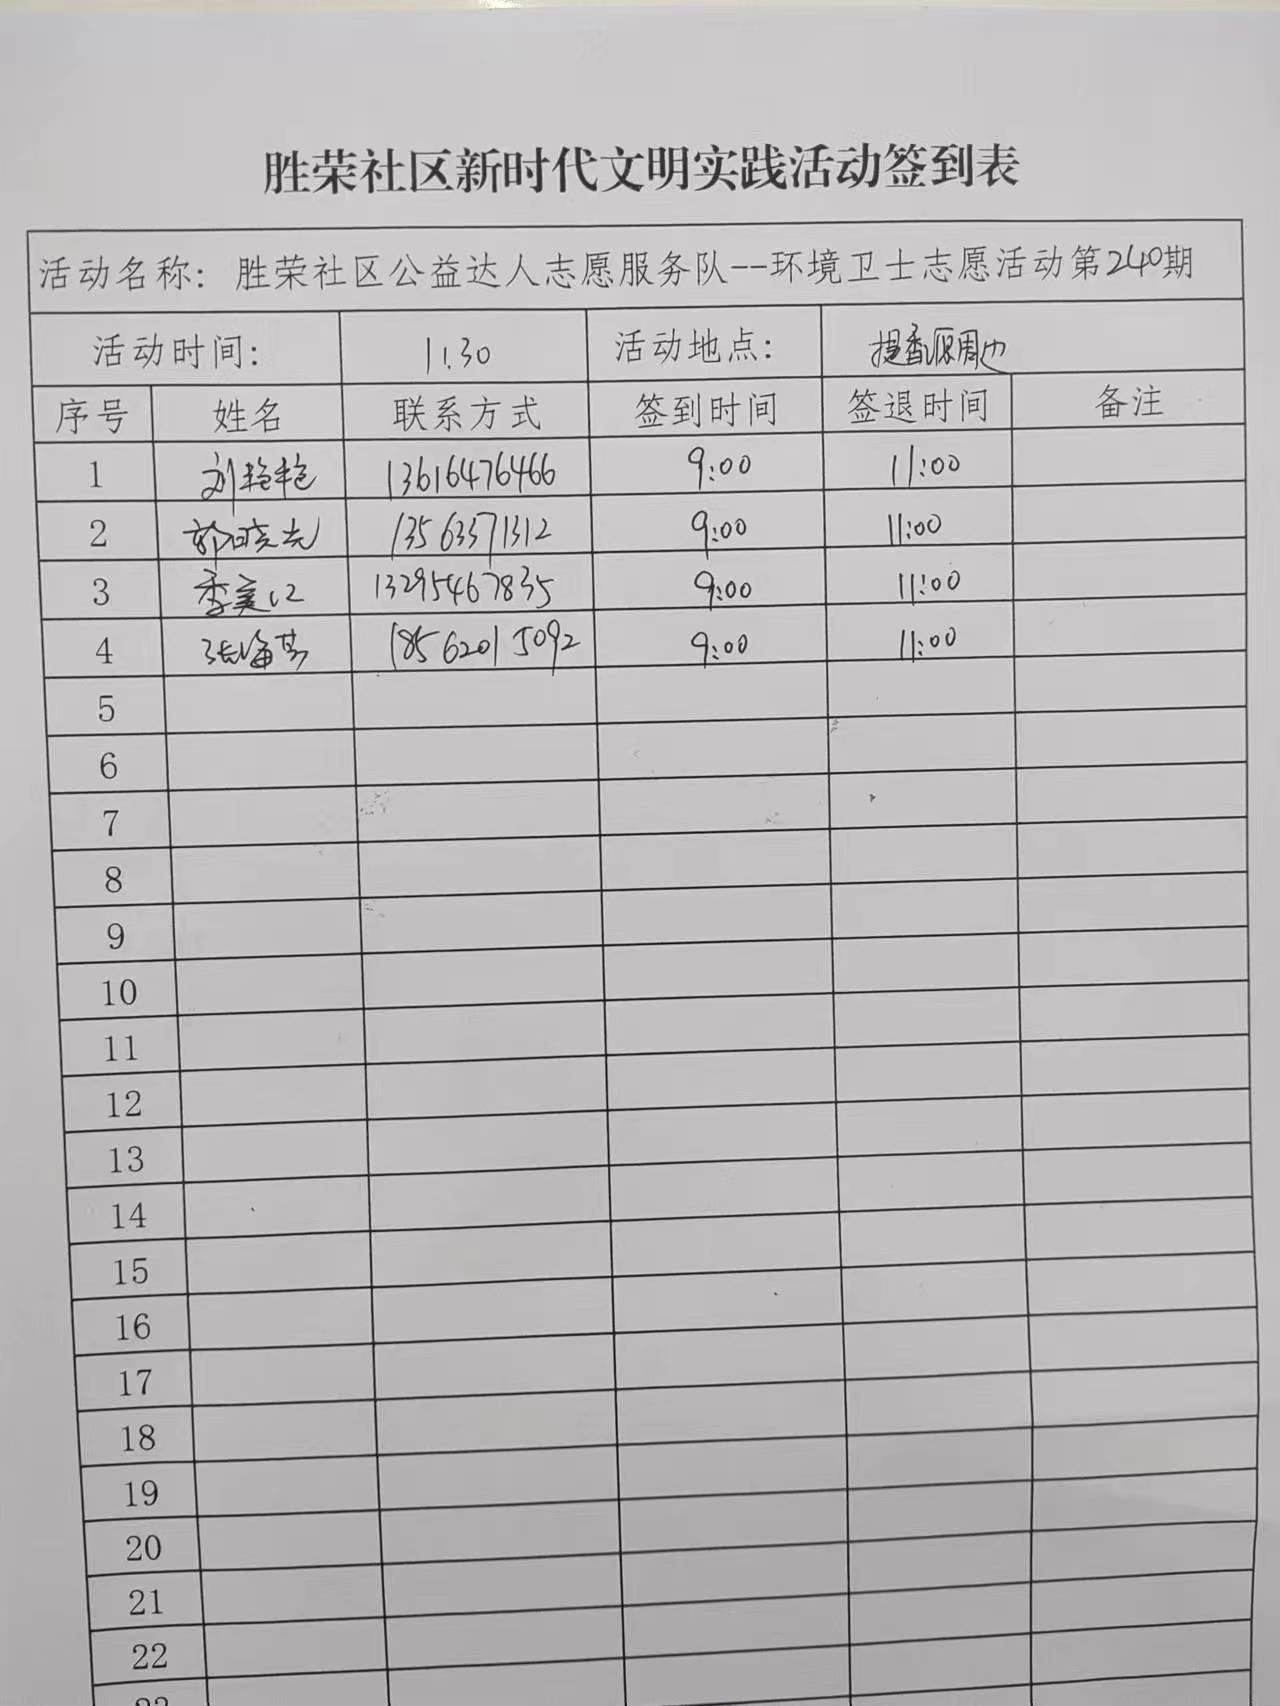 胜荣社区新时代文明实践活动签到表
活动名称：胜荣社区公益达人志愿服务队--环境卫士志愿活动第240期
活动时间： 11.30 活动地点： 提香源周边
序号 姓名 联系方式 签到时间 签退时间 备注
1 刘艳艳 13616476466 9:00 11:00
2 郭晓光 13563371312 9:00 11:00
3 季美江 13295467835 9:00 11:00
4 张海 18562015092 9:00 11:00
5
6
7
8
9
10
11
12
13
14
15
16
17
18
19
20
21
22
23